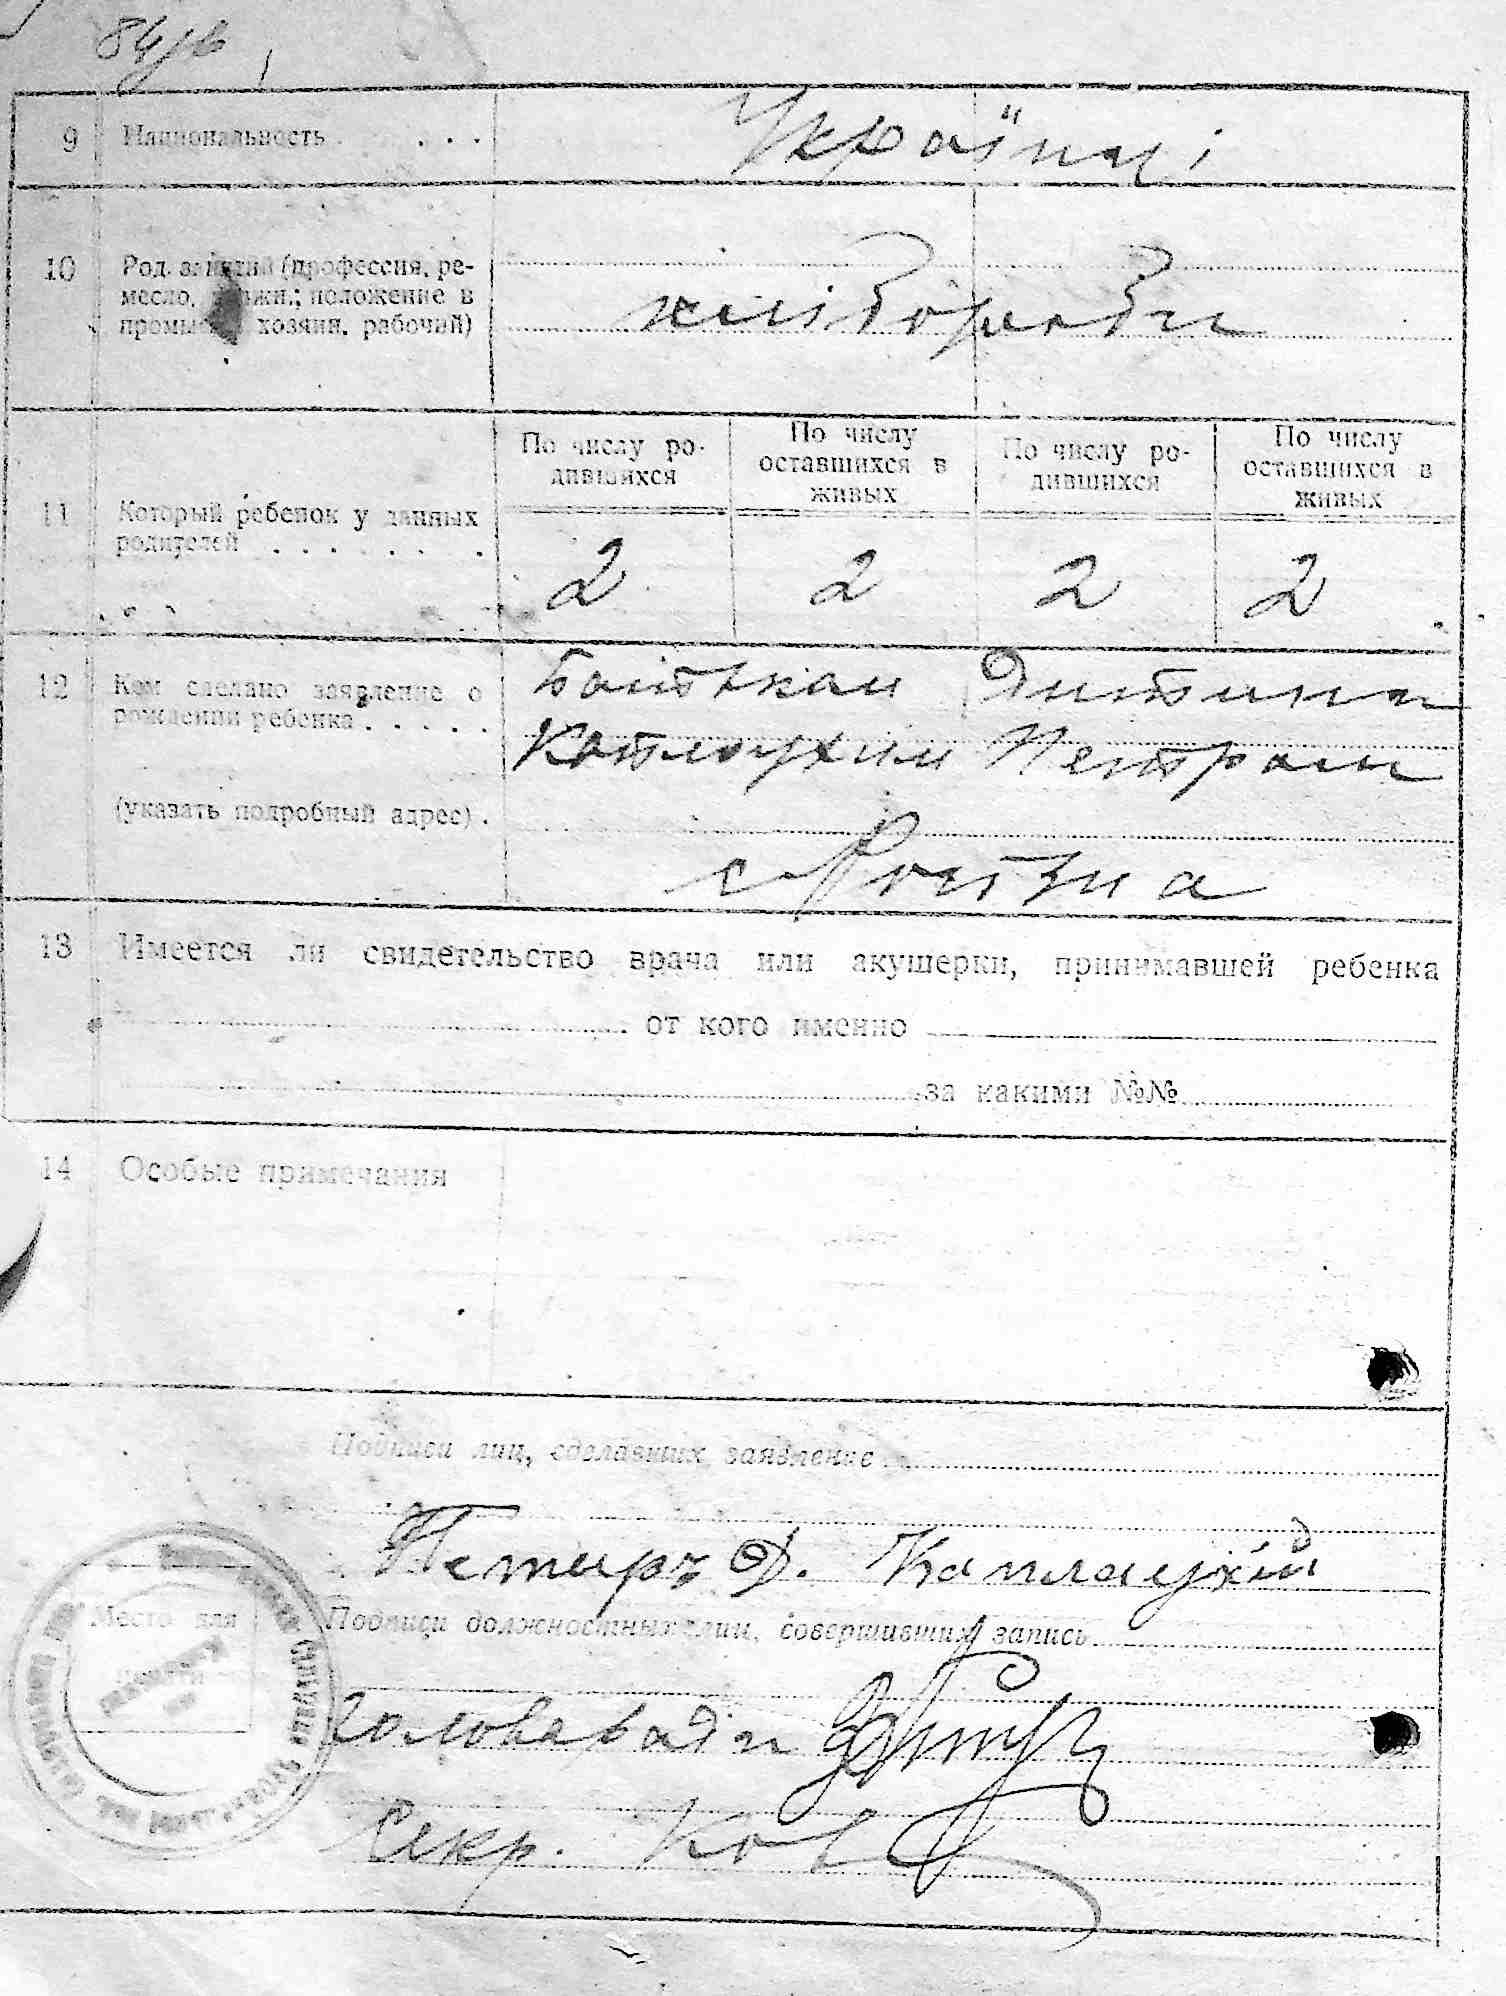 84
9 Национальность . . . . Українці
10 Род занятий (профессия, ре-
месло, должн.; положение в
промысл. хозяин, рабочий)
хлібороби
По числу ро-
дившихся
По числу
оставшихся в
живых
По числу ро-
дившихся
По числу
оставшихся в
живых
11 Который ребенок у данных
родителей . . . . . . .
2 2 2 2
12 Кем сделано заявление о
рождении ребенка . . . . .
Батьком Дитини
Петром
(указать подробный адрес) .
с
13 Имеется ли свидетельство врача или акушерки, принимавшей ребенка
от кого именно
за какими №№
14 Особые примечания
Подписи лиц, сделавших заявление
Петыръ Д. Каплаухій
Место для
печати
Подписи должностных лиц, совершивших запись
Голова ради
Секр.